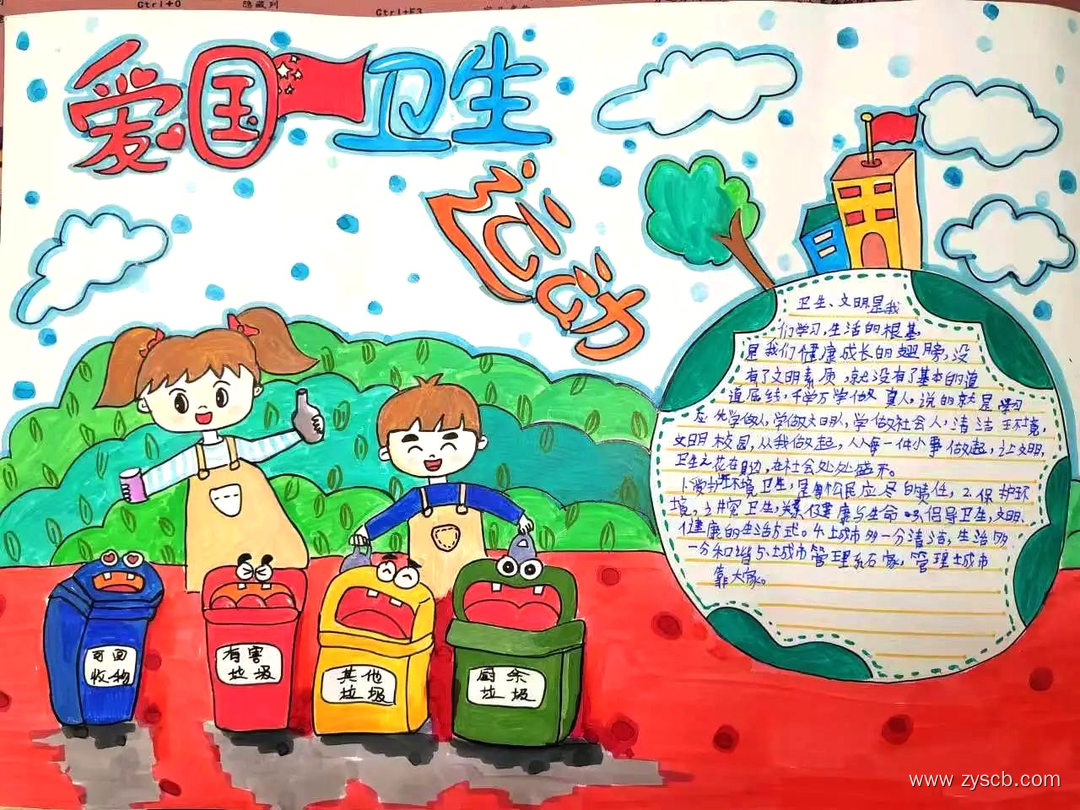 Ctrl+O
隐藏列
Ctrl+F3
爱国卫生
运动
卫生、文明是我
们学习,生活的根基
是我们健康成长的翅膀,没
有了文明素质,就没有了基本的道
道底线,千学万学做真人,说的就是学习
应先学做人,学做文明人,学做社会人,清洁环境,
文明校园,从我做起,从每一件小事做起,让文明,
卫生之花在身边,在社会处处盛开。
1.爱护环境卫生,是每个公民应尽的责任,2.保护环
境,3.讲究卫生,关系健康与生命 倡导卫生,文明、
健康的生活方式。4.城市多一分清洁,生活多
一分和谐 城市管理系百家,管理城市
靠大家。
可回
收物
有害
垃圾
其他
垃圾
厨余
垃圾
www.zyscb.com